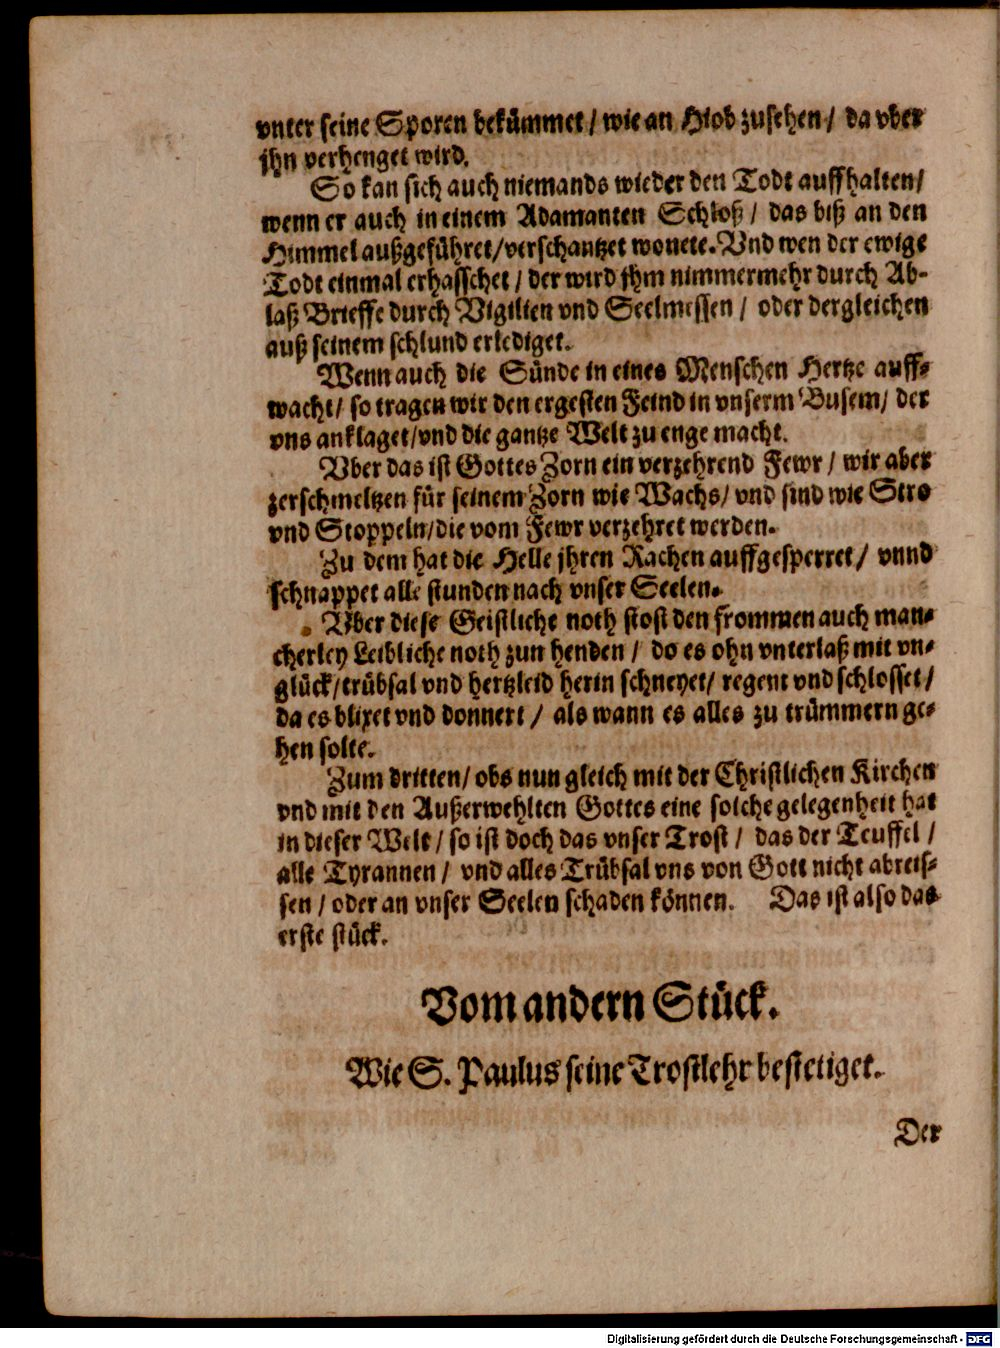 vnter seine Sporen bekümmet / wie an Hiob zusehen / da vber
jhn verhenget wird.
So kan sich auch niemands wieder den Todt auffhalten /
wenn er auch in einem Adamanten Schloß / das biß an den
Himmel außgeführet / verschantzet wonete. Vnd wen der ewige
Todt einmal erhasschet / der wird jhm nimmermehr durch Ab-
laß Brieffe durch Vigilien vnd Seelmessen / oder dergleichen
auß seinem schlund erlediget.
Wenn auch die Sünde in eines Menschen Hertze auff-
wacht / so tragen wir den ergesten Feind in vnserm Busem / der
vns anklaget / vnd die gantze Welt zu enge macht.
Vber das ist Gottes Zorn ein verzehrend Fewr / wir aber
zerschmeltzen für seinem Zorn wie Wachs / vnd sind wie Stro
vnd Stoppeln / die vom Fewr verzehret werden.
Zu dem hat die Helle jhren Rachen auffgesperret / vnnd
schnappet alle stunden nach vnser Seelen.
Vber diese Geistliche noth stost den frommen auch man-
cherley Leibliche noth zun henden / do es ohn vnterlaß mit vn-
glück / trübsal vnd hertzleid herin schneyet / regent vnd schlosset /
da es blixet vnd donnert / als wann es alles zu trümmern ge-
hen solte.
Zum dritten / obs nun gleich mit der Christlichen Kirchen
vnd mit den Außerwehlten Gottes eine solche gelegenheit hat
in dieser Welt / so ist doch das vnser Trost / das der Teuffel /
alle Tyrannen / vnd alles Trübsal vns von Gott nicht abreis-
sen / oder an vnser Seelen schaden können. Das ist also das
erste stück.
Vom andern Stück.
Wie S. Paulus seine Trostlehr bestetiget.
Der
Digitalisierung gefördert durch die Deutsche Forschungsgemeinschaft - DFG